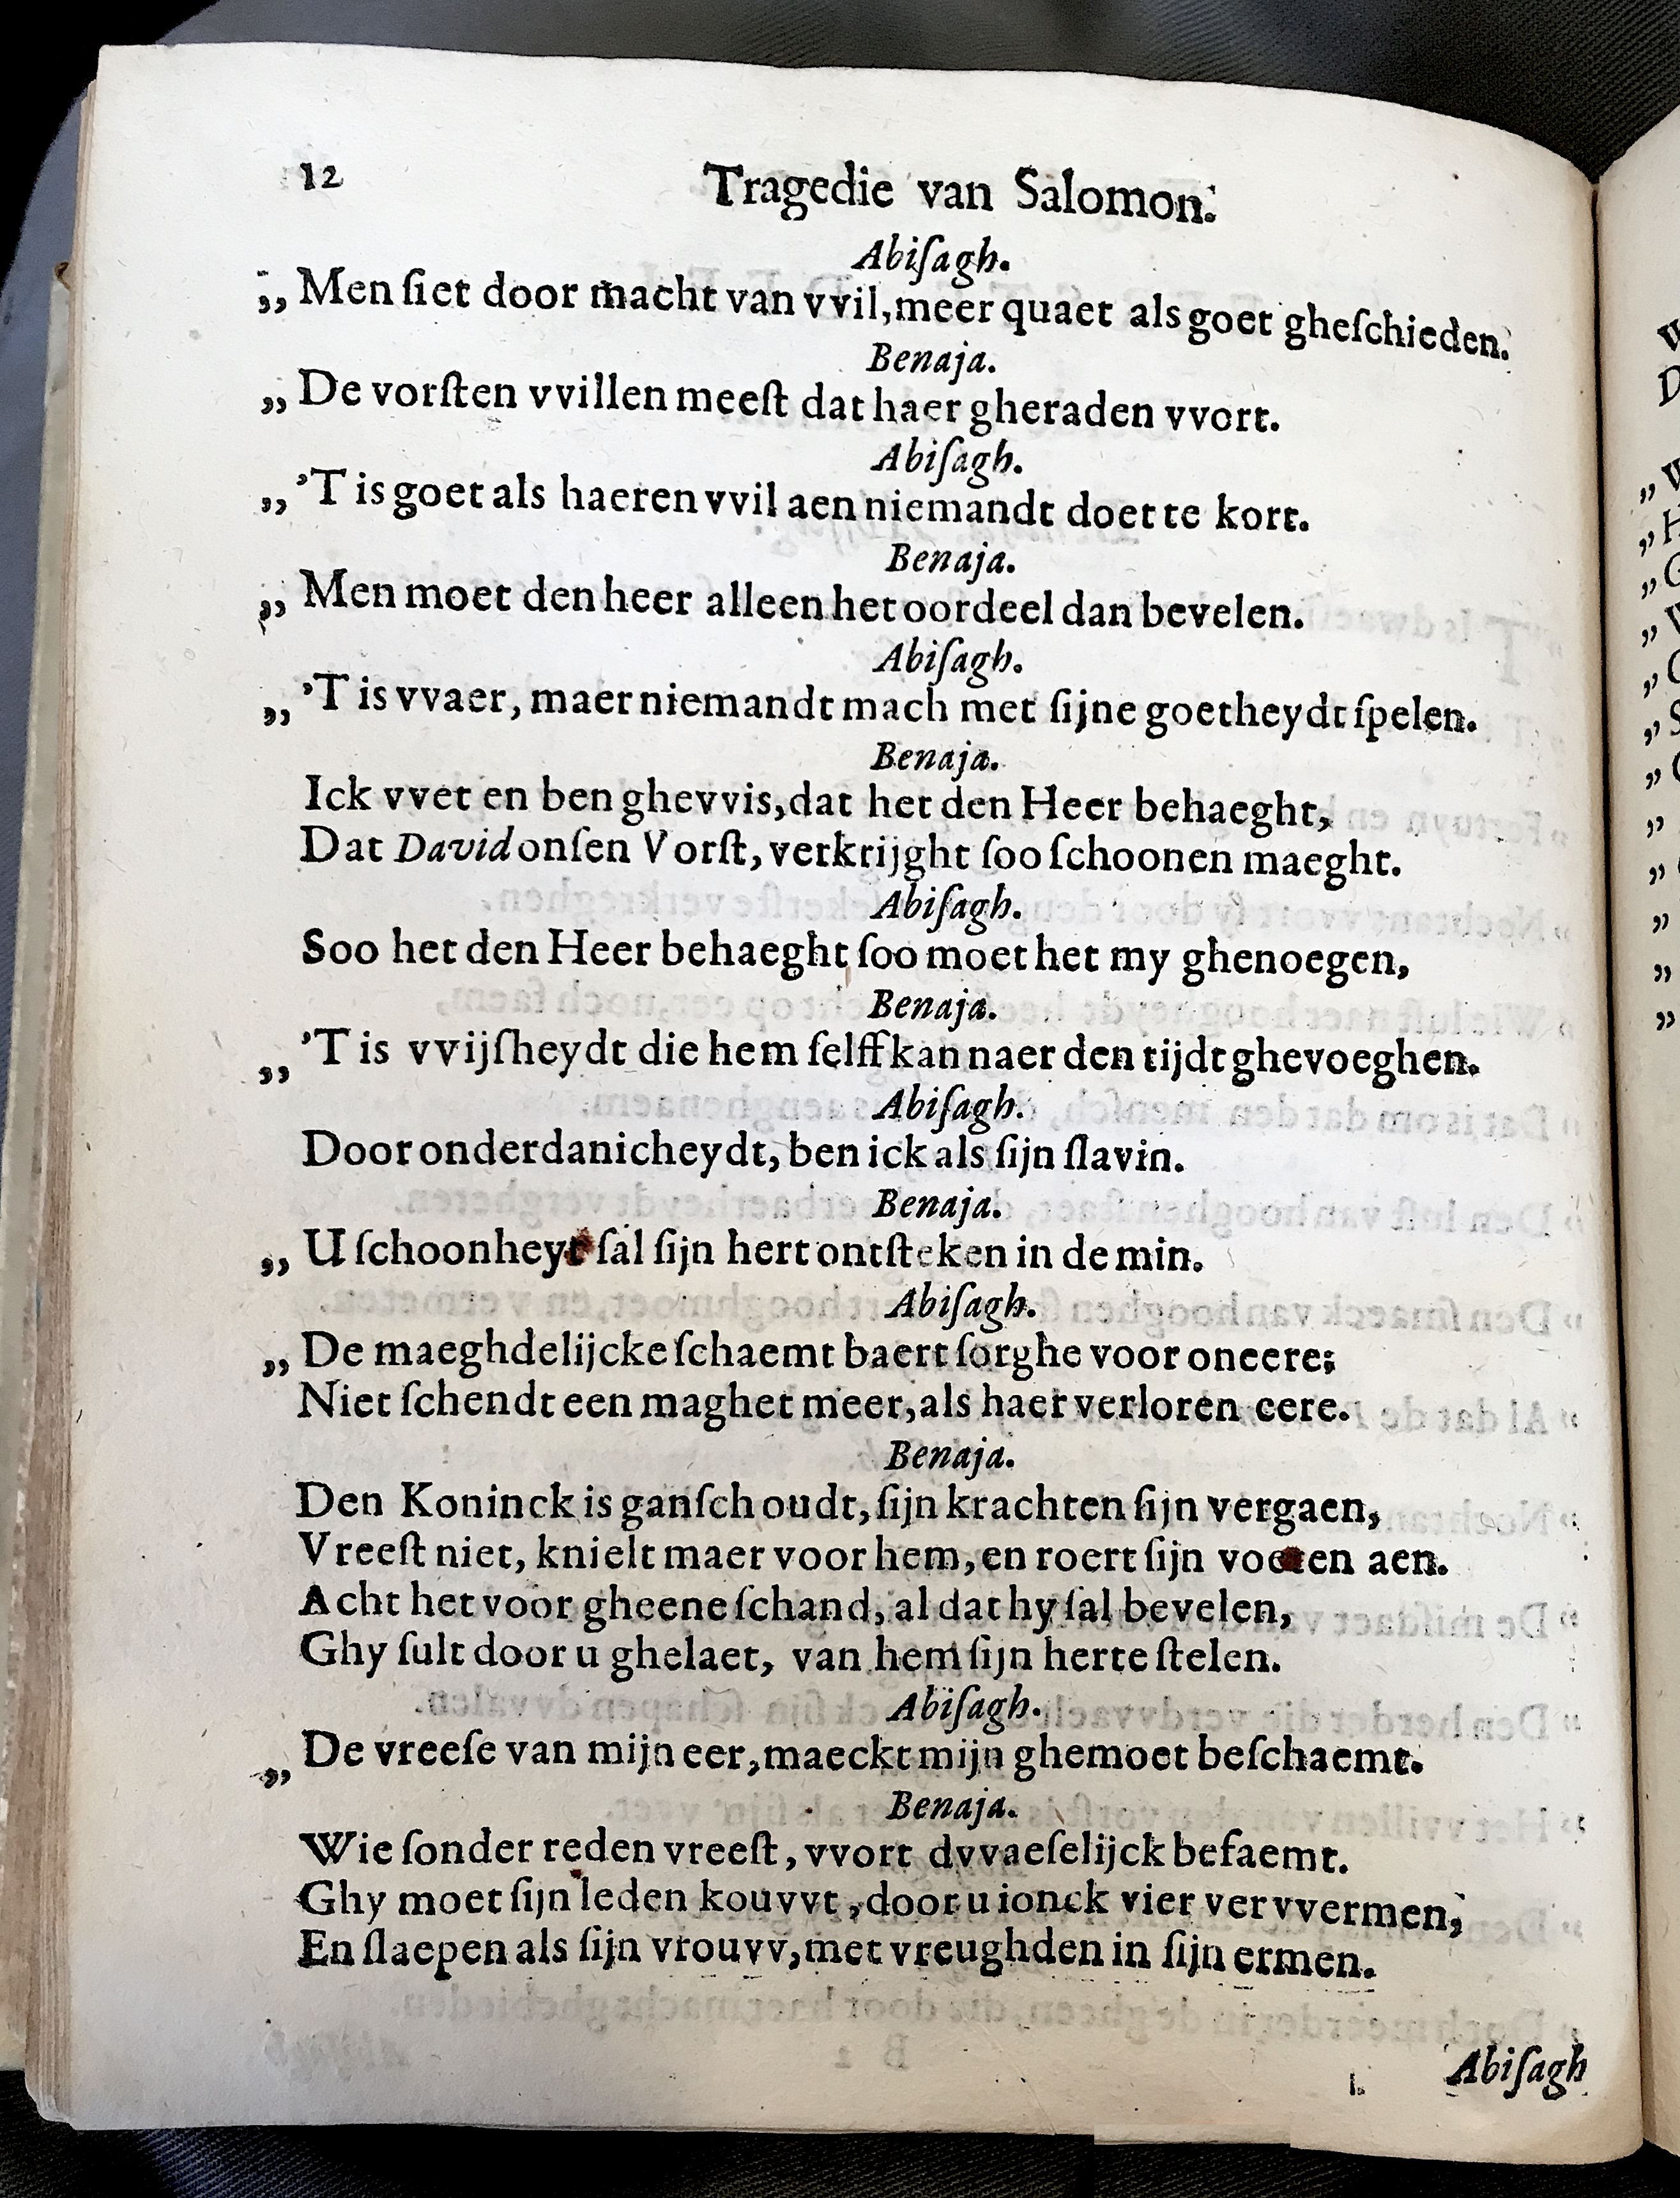 12 Tragedie van Salomon.
Abiſagh.
„ Men ſiet door macht van vvil, meer quaet als goet gheſchieden.
Benaja.
„ De vorſten vvillen meeſt dat haer gheraden vvort.
Abiſagh.
„ 'T is goet als haeren vvil aen niemandt doet te kort.
Benaja.
„ Men moet den heer alleen het oordeel dan bevelen.
Abiſagh.
„ 'T is vvaer, maer niemandt mach met ſijne goetheydt ſpelen.
Benaja.
Ick vvet en ben ghevvis, dat het den Heer behaeght,
Dat David onſen Vorſt, verkrijght ſoo ſchoonen maeght.
Abiſagh.
Soo het den Heer behaeght ſoo moet het my ghenoegen,
Benaja.
„ 'T is vvijſheydt die hem ſelff kan naer den tijdt ghevoeghen.
Abiſagh.
Door onderdanicheydt, ben ick als ſijn ſlavin.
Benaja.
„ U ſchoonheyt ſal ſijn hert ontſteken in de min.
Abiſagh.
„ De maeghdelijcke ſchaemt baert ſorghe voor oneere;
Niet ſchendt een maghet meer, als haer verloren eere.
Benaja.
Den Koninck is ganſch oudt, ſijn krachten ſijn vergaen,
Vreeſt niet, knielt maer voor hem, en roert ſijn voeten aen.
Acht het voor gheene ſchand, al dat hy ſal bevelen,
Ghy ſult door u ghelaet, van hem ſijn herte ſtelen.
Abiſagh.
„ De vreeſe van mijn eer, maeckt mijn ghemoet beſchaemt.
Benaja.
Wie ſonder reden vreeſt, vvort dvvaeſelijck befaemt.
Ghy moet ſijn leden kouvvt, door u ionck vier vervvermen,
En ſlaepen als ſijn vrouvv, met vreughden in ſijn ermen.
Abiſagh